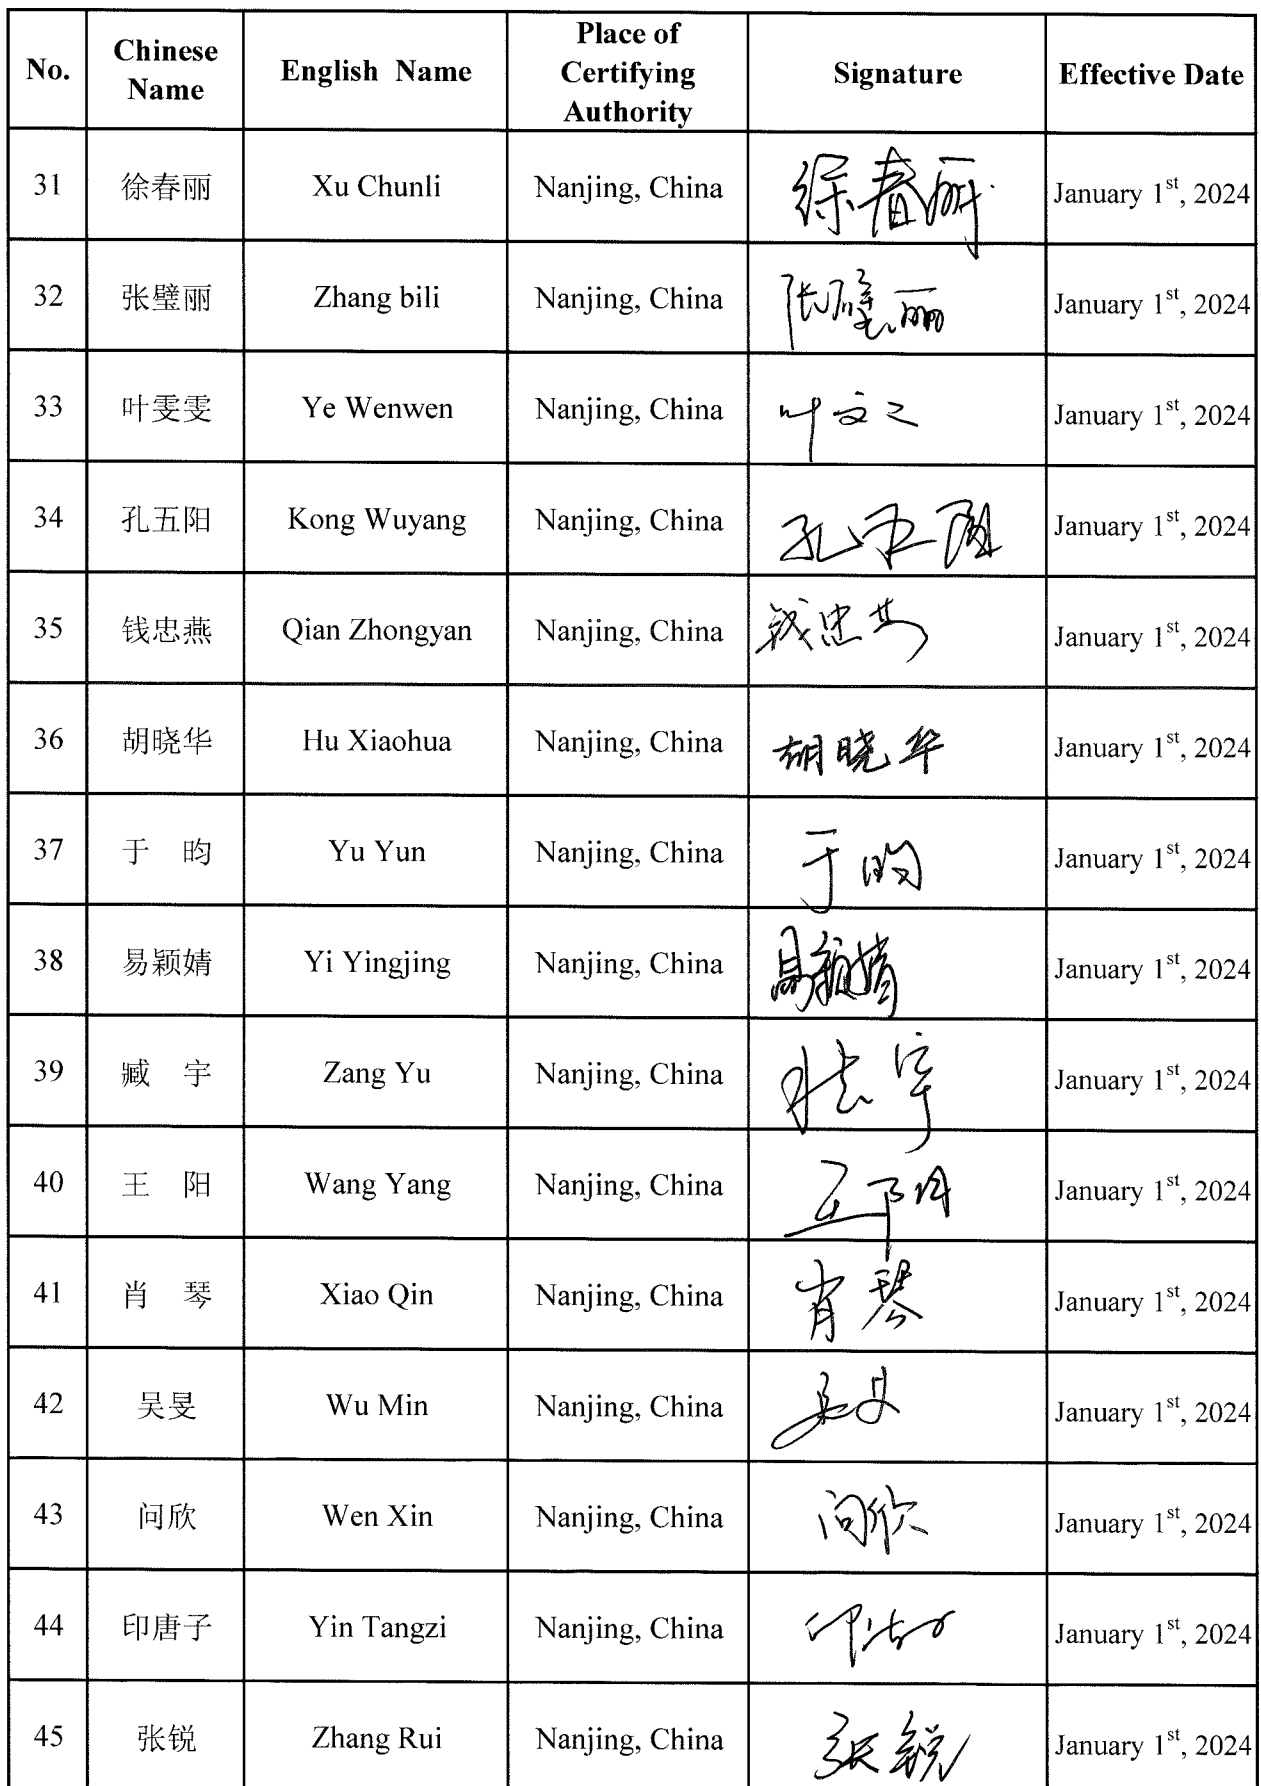 No. Chinese Name English Name Place of Certifying Authority Signature Effective Date
31 徐春丽 Xu Chunli Nanjing, China 徐春丽 January 1st, 2024
32 张璧丽 Zhang bili Nanjing, China 张璧丽 January 1st, 2024
33 叶雯雯 Ye Wenwen Nanjing, China 叶文 January 1st, 2024
34 孔五阳 Kong Wuyang Nanjing, China 孔五阳 January 1st, 2024
35 钱忠燕 Qian Zhongyan Nanjing, China 钱忠燕 January 1st, 2024
36 胡晓华 Hu Xiaohua Nanjing, China 胡晓华 January 1st, 2024
37 于 昀 Yu Yun Nanjing, China 于昀 January 1st, 2024
38 易颖婧 Yi Yingjing Nanjing, China 易颖婧 January 1st, 2024
39 臧 宇 Zang Yu Nanjing, China January 1st, 2024
40 王 阳 Wang Yang Nanjing, China 王阳 January 1st, 2024
41 肖 琴 Xiao Qin Nanjing, China 肖琴 January 1st, 2024
42 吴旻 Wu Min Nanjing, China January 1st, 2024
43 问欣 Wen Xin Nanjing, China 问欣 January 1st, 2024
44 印唐子 Yin Tangzi Nanjing, China January 1st, 2024
45 张锐 Zhang Rui Nanjing, China 张锐 January 1st, 2024